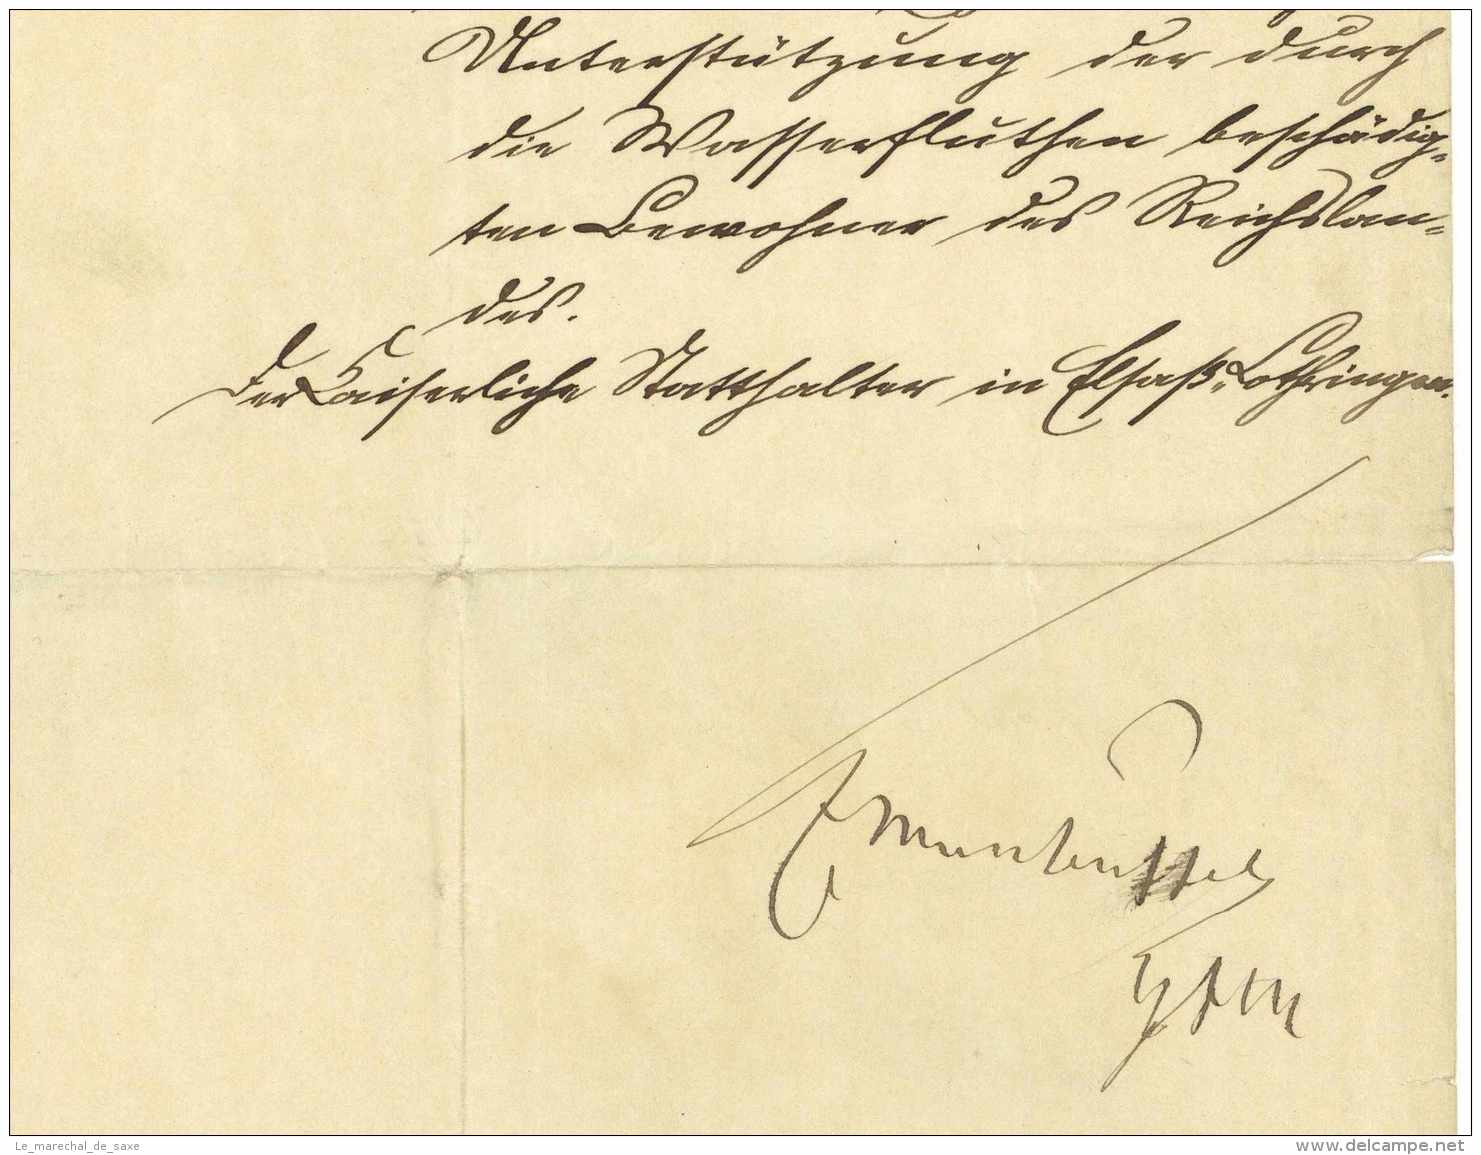 Unterstützung der durch
die Wasserfluthen beschädig-
ten Bewohner des Reichslan-
des.
Der Kaiserliche Statthalter in Elsaß-Lothringen.
EManteuffel
Le_marechal_de_saxe
www.delcampe.net